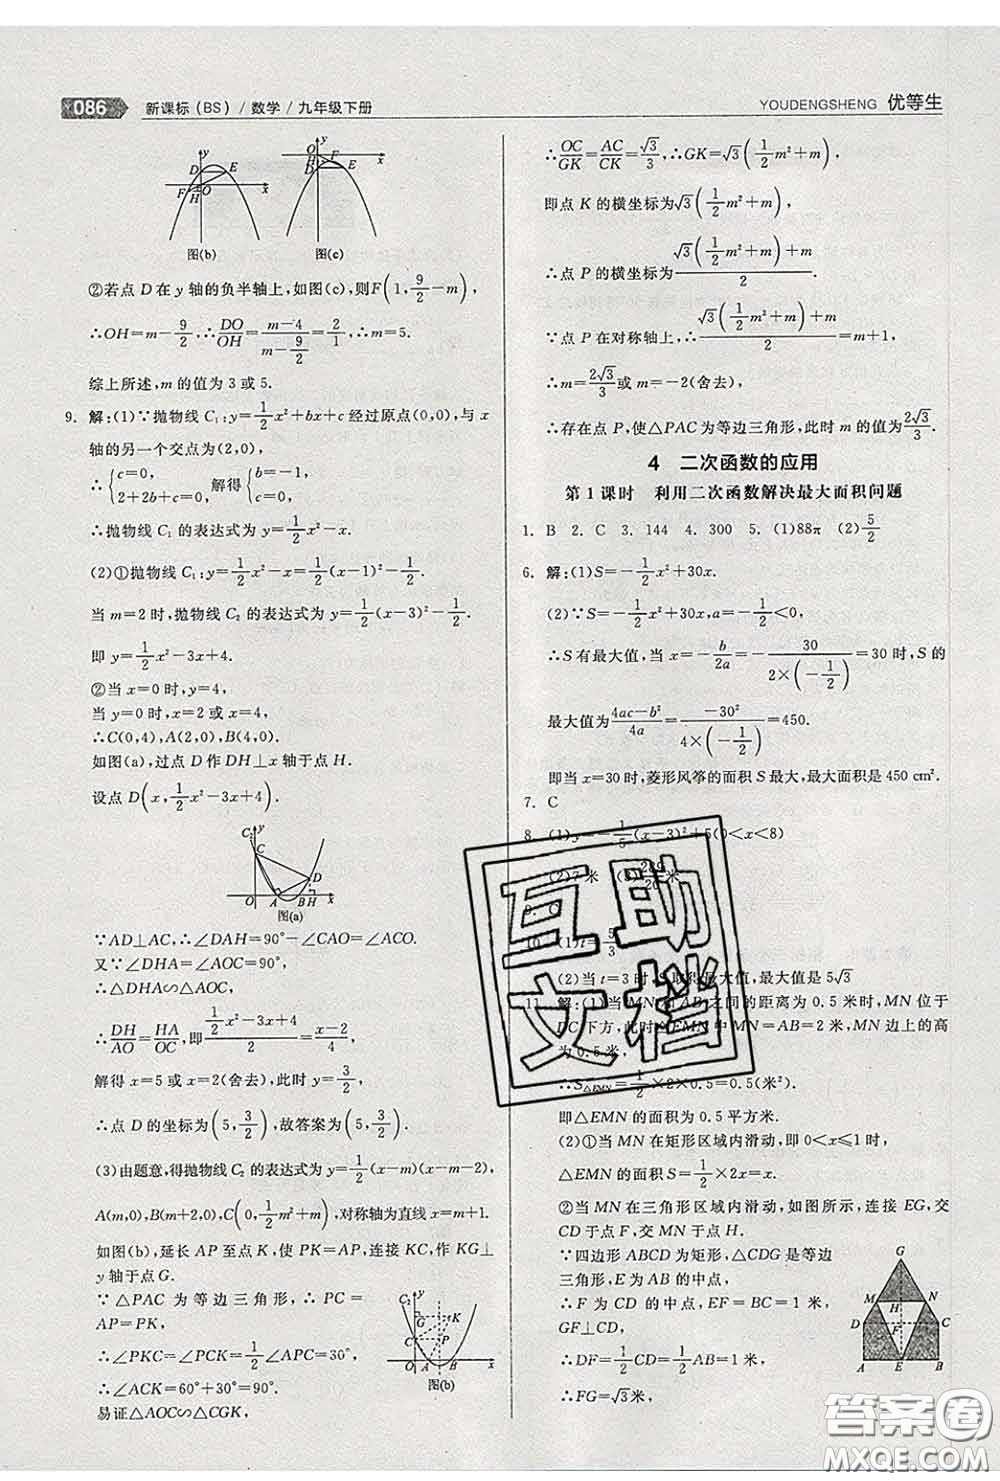 086 新课标(BS)/数学/九年级下册
YOUDENGSHENG 优等生
图(b) 图(c)
②若点D在y轴的负半轴上,如图(c),则F(1,9/2-m)
∴OH=m-9/2,∴DO/OH=(m-4)/(m-9/2)=2/1,∴m=5.
综上所述,m的值为3或5.
9. 解:(1)∵抛物线C₁:y=1/2x²+bx+c经过原点(0,0),与x
轴的另一个交点为(2,0),
∴{c=0, 2+2b+c=0, 解得{b=-1, c=0.
∴抛物线C₁的表达式为y=1/2x²-x.
(2)①抛物线C₁:y=1/2x²-x=1/2(x-1)²-1/2.
当m=2时,抛物线C₂的表达式为y=1/2(x-3)²-1/2,
即y=1/2x²-3x+4.
②当x=0时,y=4,
当y=0时,x=2或x=4.
∴C(0,4),A(2,0),B(4,0).
如图(a),过点D作DH⊥x轴于点H.
设点D(x,1/2x²-3x+4).
图(a)
∵AD⊥AC,∴∠DAH=90°-∠OAC=∠ACO.
又∵∠DHA=∠AOC=90°,
∴△DHA∽△AOC,
∴DH/AO=HA/OC,即(1/2x²-3x+4)/2=(x-2)/4,
解得x=5或x=2(舍去),此时y=3/2,
∴点D的坐标为(5,3/2),故答案为(5,3/2).
(3)由题意,得抛物线C₂的表达式为y=1/2(x-m)(x-m-2),
A(m,0),B(m+2,0),C(0,1/2m²+m),对称轴为直线x=m+1.
如图(b),延长AP至点K,使PK=PA,连接KC,作KG⊥
y轴于点G.
∵△PAC为等边三角形,∴PC=
AP=PK,
∴∠PKC=∠PCK=1/2∠APC=30°,
∴∠ACK=60°+30°=90°.
易证△AOC∽△CGK,
图(b)
∴OC/GK=AC/CK=√3/3,∴GK=√3(1/2m²+m),
即点K的横坐标为√3(1/2m²+m),
∴点P的横坐标为(√3(1/2m²+m)+m)/2.
∵点P在对称轴上,∴(√3(1/2m²+m)+m)/2=m+1,
∴m=2√3/3或m=-2(舍去),
∴存在点P,使△PAC为等边三角形,此时m的值为2√3/3.
4 二次函数的应用
第1课时 利用二次函数解决最大面积问题
1. B 2. C 3. 144 4. 300 5. (1)88π (2)5/2
6. 解:(1)S=-1/2x²+30x.
(2)∵S=-1/2x²+30x,a=-1/2<0,
∴S有最大值,当x=-b/2a=-30/(2×(-1/2))=30时,S的
最大值为(4ac-b²)/4a=-30²/(4×(-1/2))=450.
即当x=30时,菱形风筝的面积S最大,最大面积是450 cm².
7. C
8. (1)y=-1/5(x-3)²+5(0<x<8)
(2)7米
9. C
10. (1)t=5/3
(2)当t=3时,S取得最大值,最大值是5√3
11. 解:(1)当MN和AB之间的距离为0.5米时,MN位于
DC下方,此时△EMN中MN=AB=2米,MN边上的高
为0.5米,
∴S△EMN=1/2×2×0.5=0.5(米²).
即△EMN的面积为0.5平方米.
(2)①当MN在矩形区域内滑动,即0<x≤1时,
△EMN的面积S=1/2×2x=x.
②当MN在三角形区域内滑动时,如图所示,连接EG,交
CD于点F,交MN于点H.
∵四边形ABCD为矩形,△CDG是等边
三角形,E为AB的中点,
∴F为CD的中点,EF=BC=1米,
GF⊥CD.
∴DF=1/2CD=1/2AB=1米,
∴FG=√3米.
互助
文档
答案圈
MXQE.COM